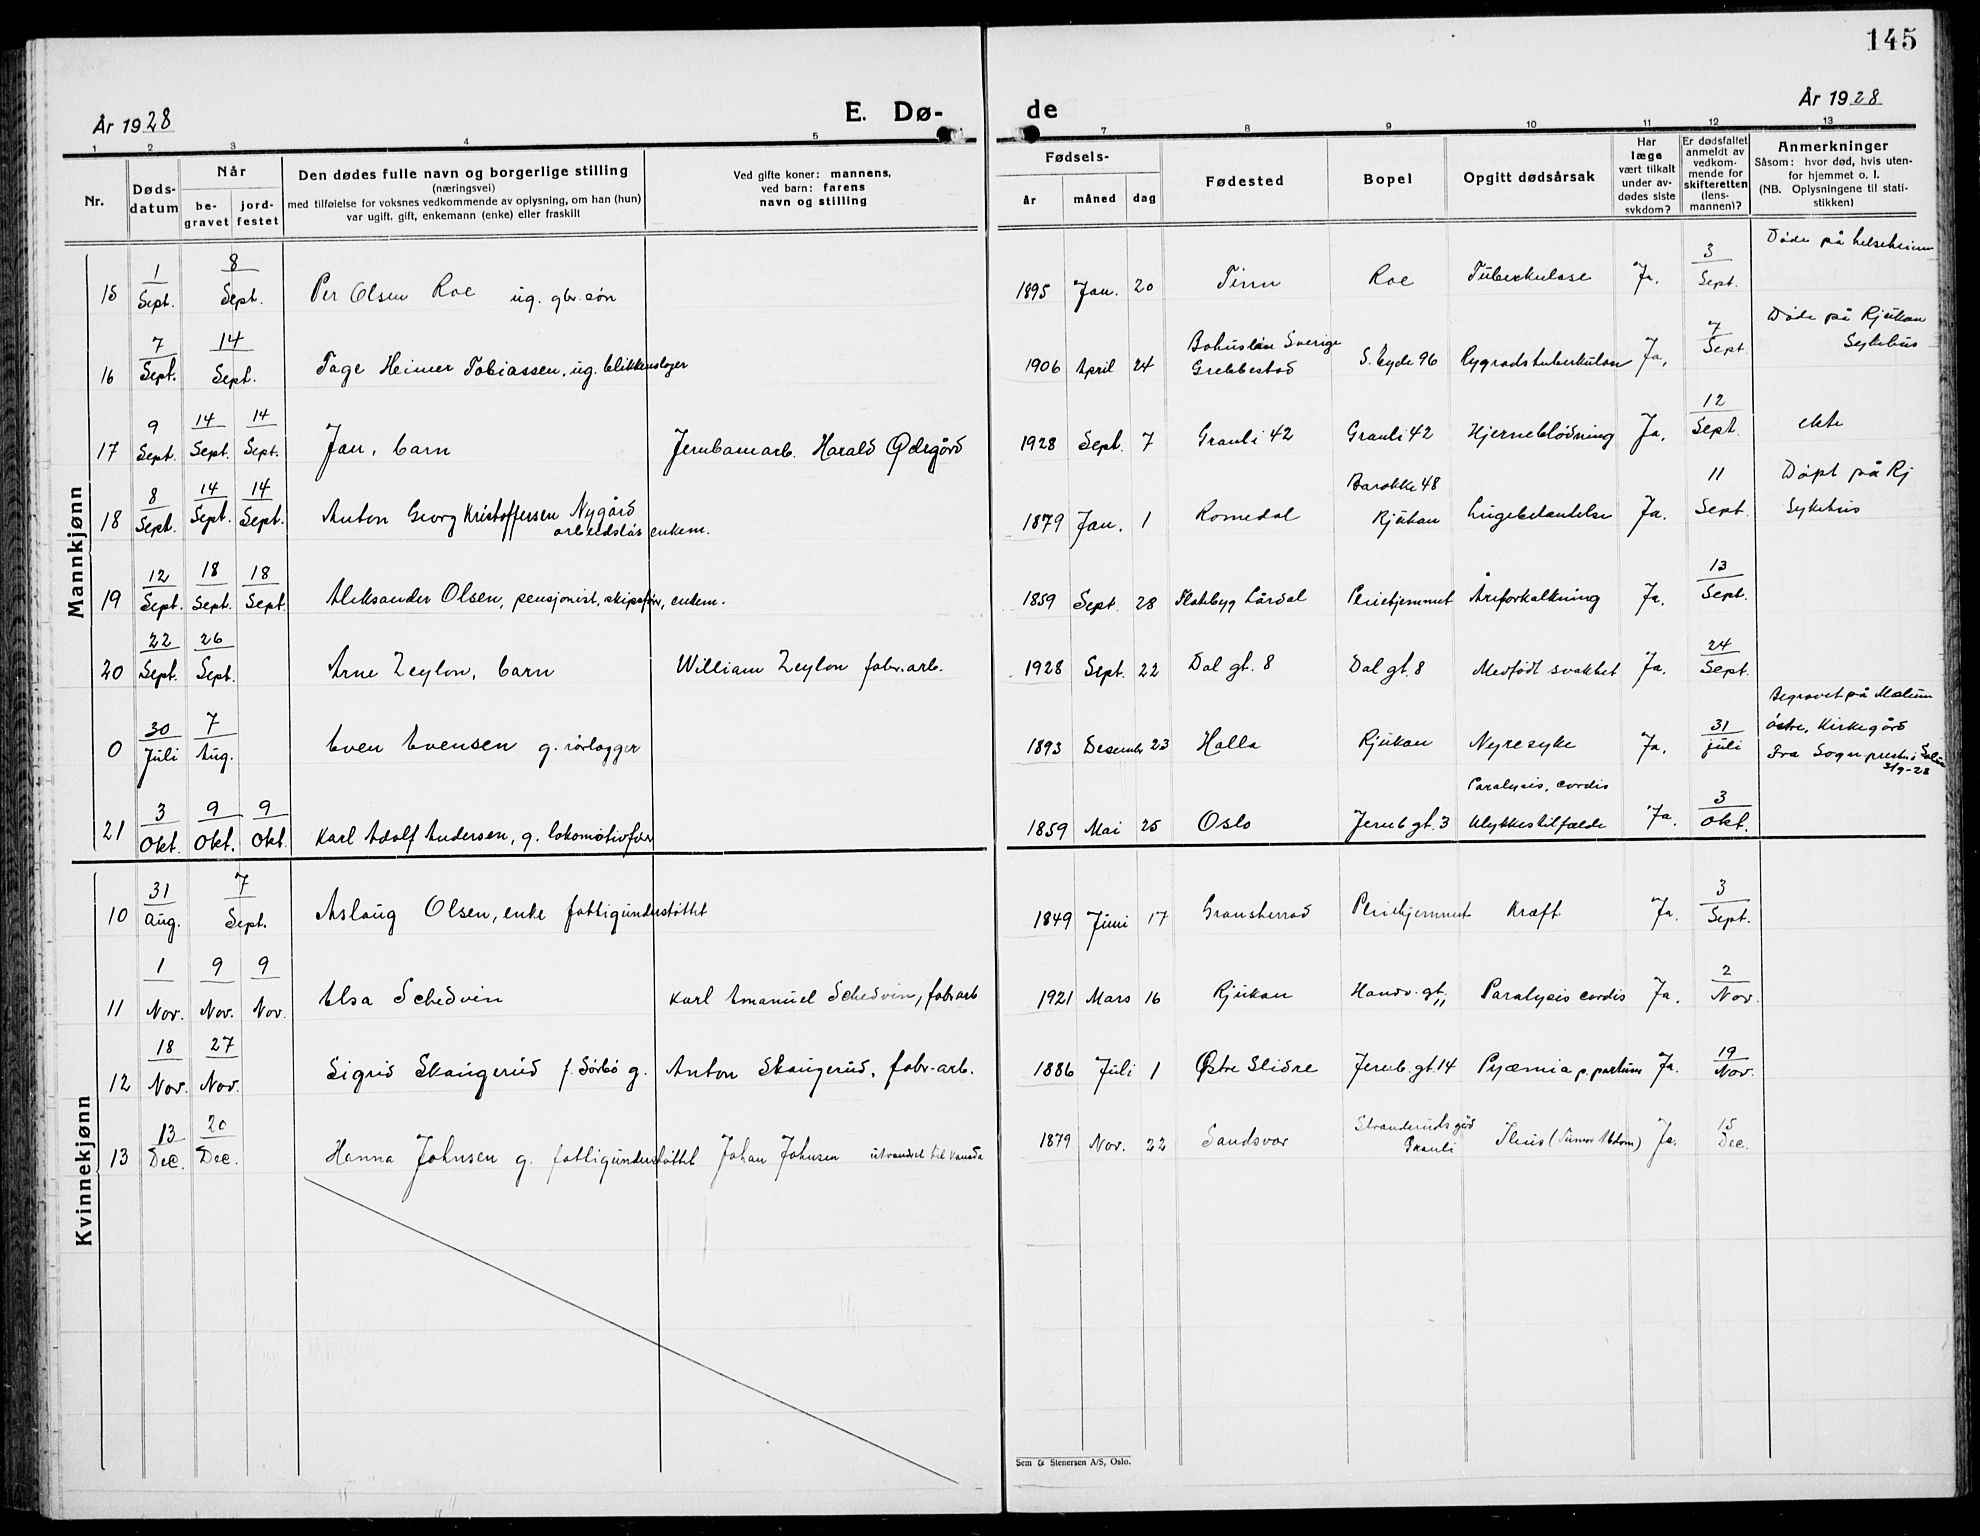 145
År 1928
E. Dø-
de
År 1928
1 2 3 4 5 7 8 9 10 11 12 13
Nr.
Døds-
datum
Når
be-
gravet
jord-
festet
Den dødes fulle navn og borgerlige stilling
(næringsvei)
med tilføielse for voksnes vedkommende av oplysning, om han (hun)
var ugift, gift, enkemann (enke) eller fraskilt
Ved gifte koner: mannens,
ved barn: farens
navn og stilling
Fødsels-
år måned dag
Fødested
Bopel
Opgitt dødsårsak
Har
læge
vært tilkalt
under av-
dødes siste
sykdom?
Er dødsfallet
anmeldt av
vedkom-
mende for
skifteretten
(lens-
mannen)?
Anmerkninger
Såsom: hvor død, hvis uten-
for hjemmet o. l.
(NB. Oplysningene til stati-
stikken)
Mannkjønn
15 1/Sept. 8/Sept. Per Olsen Roe ug. gbr. søn 1895 Jan. 20 Tinn Roe Tuberkulose Ja. 3/Sept. Døde på helseheim
16 7/Sept. 14/Sept. Tage Heimer Tobiassen, ug. blikkenslager 1906 April 24 Bohuslän Sverige
Grebbestad S. Eyde 96 Rygradstuberkulose Ja. 7/Sept. Døde på Rjukan
Sykehus
17 9 Sept. 14/Sept. 14/Sept. Jan, barn Jernbanearb. Harald Ødegård 1928 Sept. 7 Grauli 42 Grauli 42 Hjerneblødning Ja. 12/Sept. ekte
18 8/Sept. 14/Sept. 14/Sept. Anton Georg Kristoffersen Nygård
arbeidsløs enkem. 1879 Jan. 1 Romedal Barakke 48
Rjukan Lugebetendelse Ja. 11 Sept. Døpt på Rj
Sykehus
19 12/Sept. 18/Sept. 18/Sept. Aleksander Olsen, pensjonist, skipsfør, enkem. 1859 Sept. 28 Lårdal Pleiehjemmet Åreforkalkning Ja. 13/Sept.
20 22/Sept. 26/Sept. Arne Zeylon, barn William Zeylon fabr. arb. 1928 Sept. 22 Dal gt. 8 Dal gt. 8 Medfødt svakhet Ja. 24/Sept.
0 30/Juli 7/Aug. Even Evensen g. rørlegger 1893 Desember 23 Holla Rjukan Nyresyke Ja. 31/juli Begravet på Mælum
østre, Kirkegård
Fra Sogneprest i
3/9-28
21 3/Okt. 9/Okt. 9/Okt. Karl Adolf Andersen, g. lokomotivfør 1859 Mai 25 Oslo Jernb gt. 3 Paralysis, cordis
Ulykkestilfælde Ja. 3/Okt.
Kvinnekjønn
10 31/Aug. 7/Sept. Aslaug Olsen, enke fattigunderstøttet 1849 Juni 17 Gransherrad Pleiehjemmet Kræft Ja. 3/Sept.
11 1/Nov. 9/Nov. 9/Nov. Elsa Schedvin Karl Emanuel Schedvin, fabr arb 1921 Mars 16 Rjukan Handv. gt. 11 Paralysis cordis Ja. 2/Nov.
12 18/Nov. 27/Nov. Sigrid Skaugerud f. Sørbø g. Anton Skaugerud, fabr. arb. 1886 Juli 1 Østre Slidre Jernb. gt. 14 Pyæmia p. partum Ja. 19/Nov.
13 13/Dec. 20/Dec. Hanna Johnsen g. fattigunderstøttet Johan Johnsen utvandret til Kanada 1879 Nov. 22 Sandsvær Stranderuds gård
Grauli Ileus (Tumor Abdom) Ja. 15/Dec.
Sem & Stenersen A/S, Oslo.